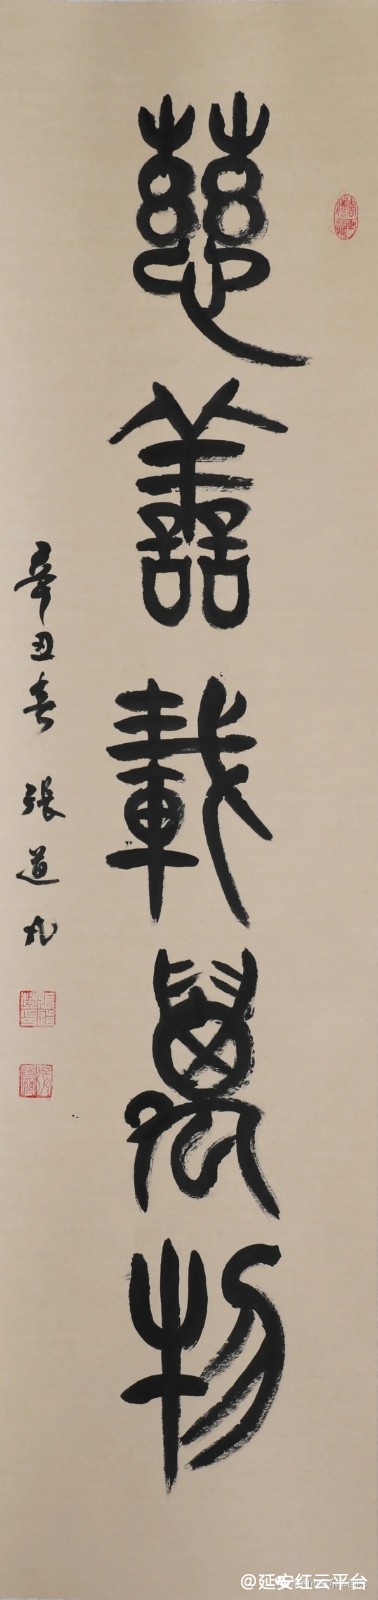 慈善載萬物
辛丑春 張道
@延安红云平台